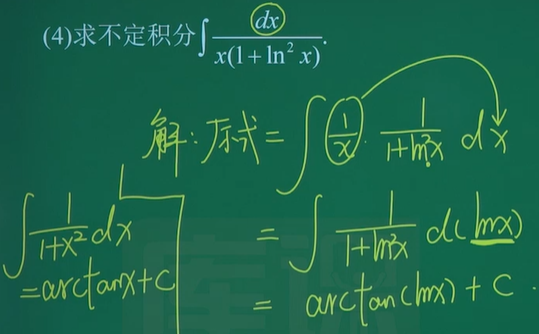 (4)求不定积分∫ dx / x(1+ln² x).
解:原式=∫ 1/x · 1/(1+ln²x) dx
= ∫ 1/(1+ln²x) d(lnx)
= arctan(lnx)+C.
∫ 1/(1+x²) dx
=arctanx+C